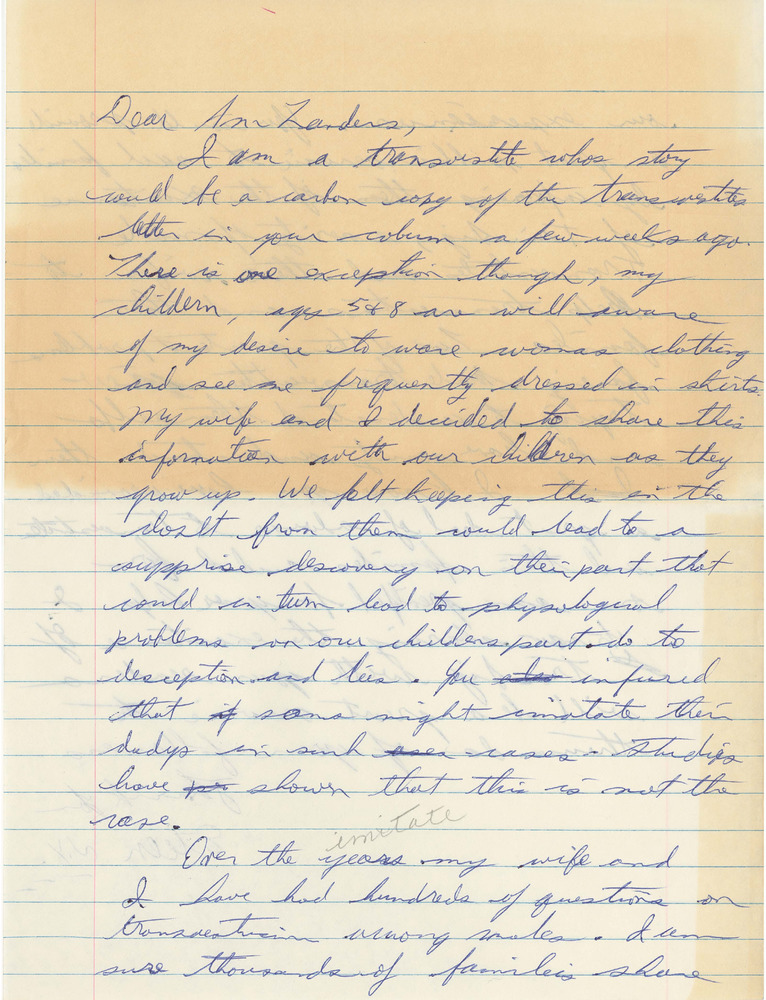 Dear Ann Landers,
I am a transvestite whos story
would be a carbon copy of the transvestites
letter in your colum a few weeks ago.
There is one exception though, my
childern, ages 5 & 8 are will aware
of my desire to ware womas clothing
and see me frequently dressed in skirts.
My wife and I decided to share this
information with our children as they
grow up. We felt keeping this in the
closlt from them would lead to a
supprise descovery on their part that
could in turn lead to physological
problems on our childerns part do to
desception and lies. You infured
that if sons might imatate their
dadys in such cases. Studies
have shown that this is not the
case.
imitate
Over the years my wife and
I have had hundreds of questions on
transvestisim among males. I am
sure thousands of famileis share